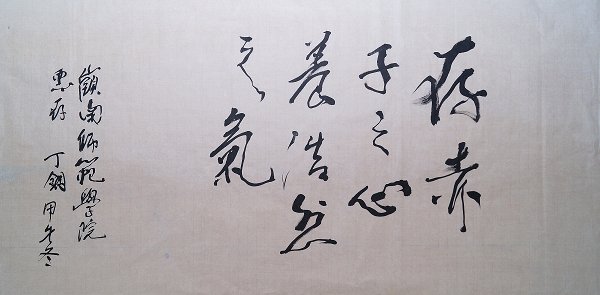 存赤
子之心
養浩然
之氣
嶺南師範學院
惠存
丁鋼 甲午冬